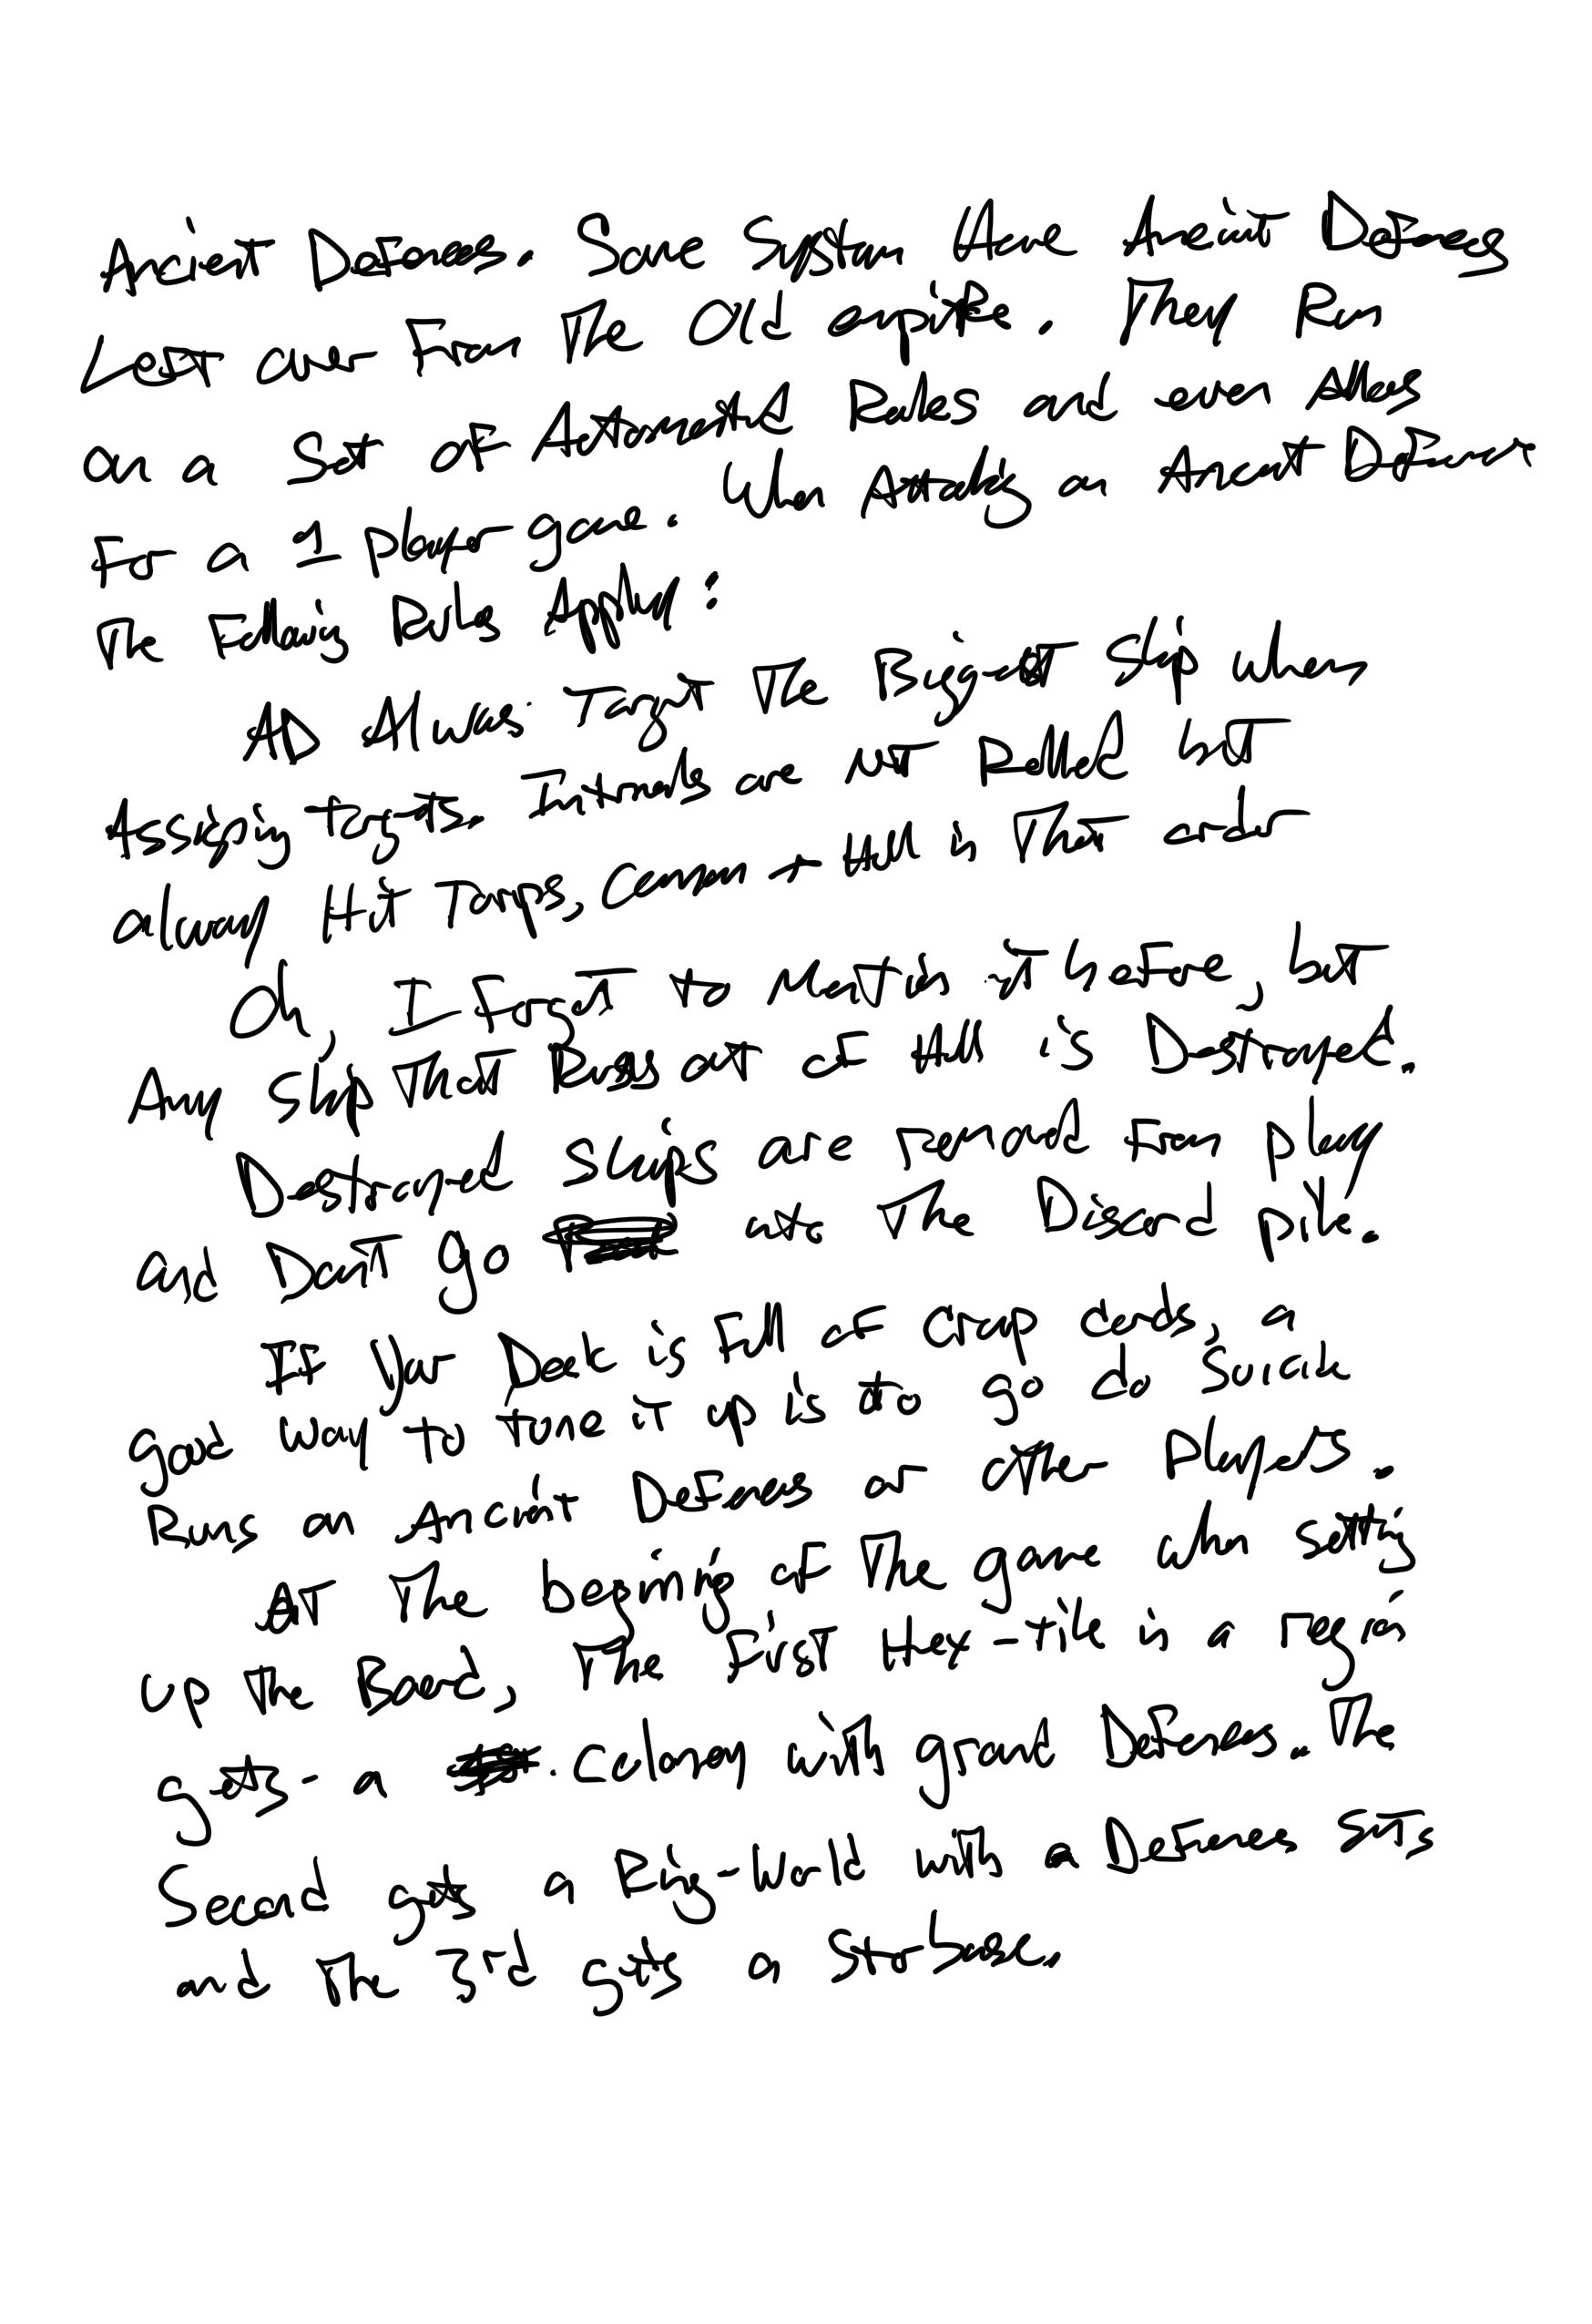 Ancient Defenses. Some System Have Ancient Defenses
Left over From The Old empire. They Run
on a Set of Automated Rules and even Allows
For a 1 player game. When Attacking an Ancient Defense
The Following Rules Apply:
AD Always Target The Biggest Ship when
Assigning targets. Internals are not Rolled but
always Hit Torps, Cannon + Hull in That order
Oh, I Forgot to Mention it before, but
Any ship That Runs out of Hull is Destroyed.
Destroyed ships are removed From play
and Don't go into The Discard pile.
If Your Deck is Full of Crap cards, a
good way to tune it up is to go do Suicide
Runs on Ancient Defenses or other Players.
AT The begining of The game when setting
up the Board, The First Hex-tile in a region
gets - a Colony with grand Defenses. The
Second gets a Ring-World with a Defenses Sats
and The 3rd gets a Starbase.